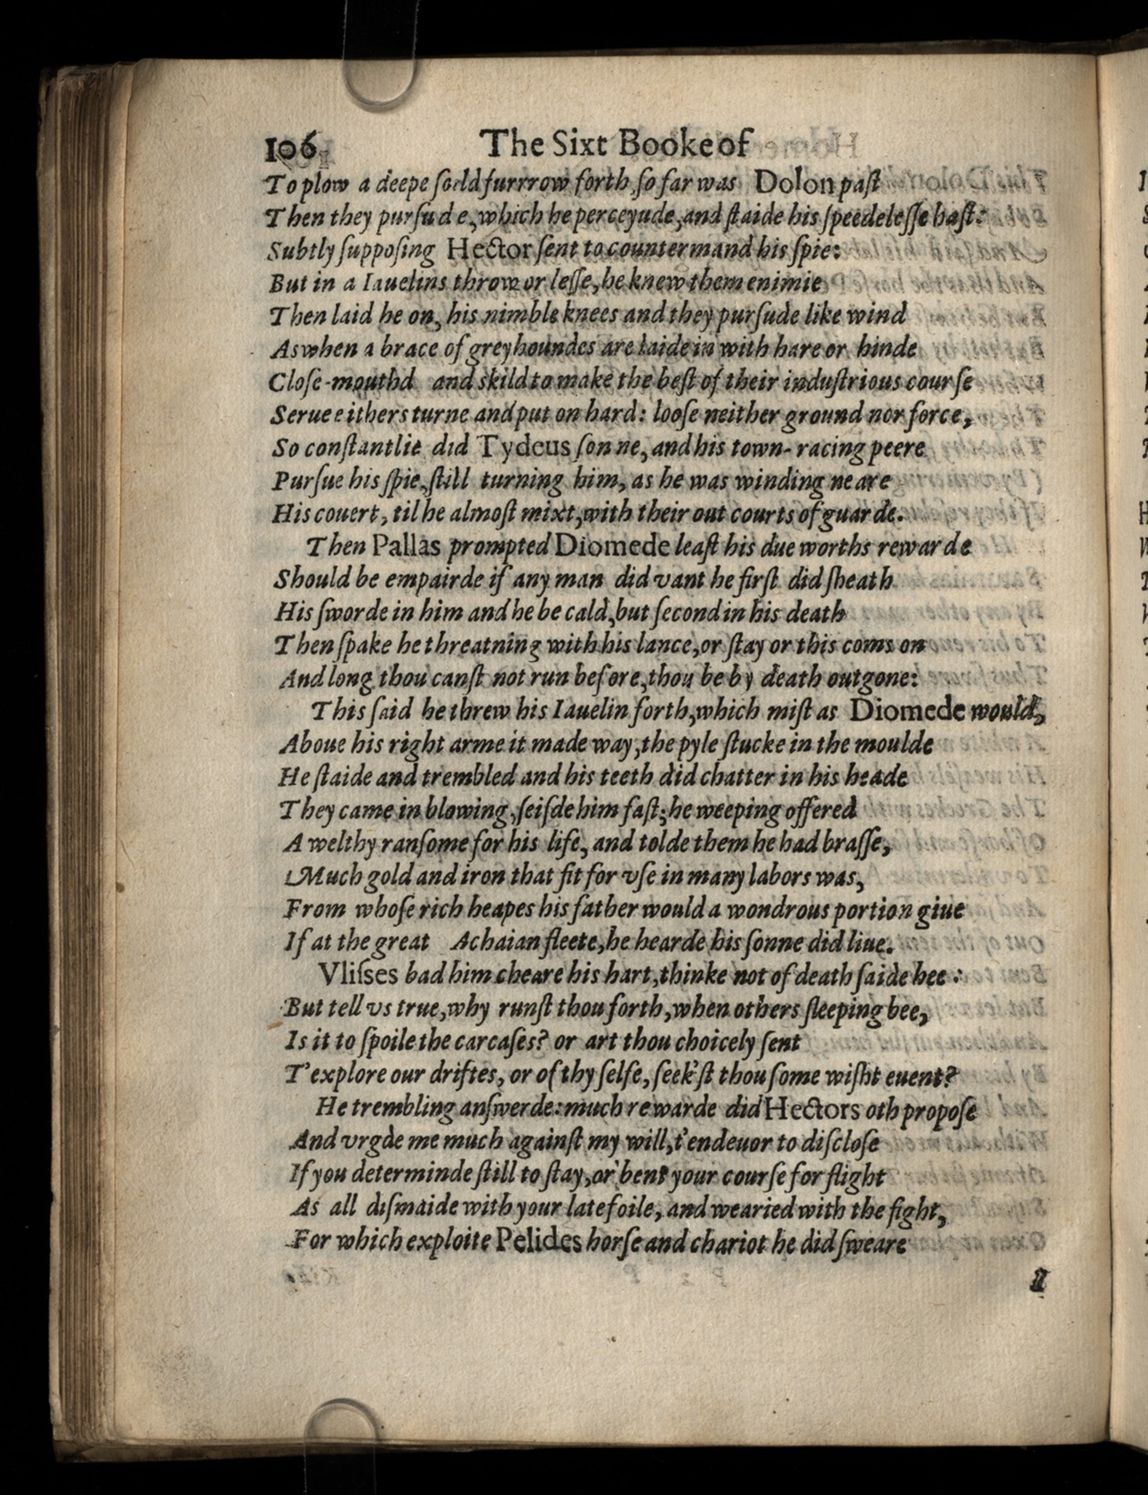 106 The Sixt Booke of
To plow a deepe ſoild furrrow forth ſo far was Dolon paſt
Then they purſude, which he perceyude, and ſtaide his ſpeedeleſſe haſt:
Subtly ſuppoſing Hector ſent to countermand his ſpie:
But in a Iauelins throw or leſſe, he knew them enimie
Then laid he on, his nimble knees and they purſude like wind
As when a brace of greyhoundes are laide in with hare or hinde
Cloſe-mouthd and skild to make the beſt of their induſtrious courſe
Serue eithers turne and put on hard: looſe neither ground nor force,
So conſtantlie did Tydeus ſonne, and his town-racing peere
Purſue his ſpie, ſtill turning him, as he was winding neare
His couert, til he almoſt mixt, with their out courts of guarde.
Then Pallas prompted Diomede leaſt his due worths rewarde
Should be empairde if any man did vant he firſt did ſheath
His ſworde in him and he be cald, but ſecond in his death
Then ſpake he threatning with his lance, or ſtay or this coms on
And long thou canſt not run before, thou be by death outgone:
This ſaid he threw his Iauelin forth, which miſt as Diomede would,
Aboue his right arme it made way, the pyle ſtucke in the moulde
He ſtaide and trembled and his teeth did chatter in his heade
They came in blowing, ſeiſde him faſt; he weeping offered
A welthy ranſome for his life, and tolde them he had braſſe,
Much gold and iron that fit for vſe in many labors was,
From whoſe rich heapes his father would a wondrous portion giue
If at the great Achaian fleete, he hearde his ſonne did liue.
Vliſses bad him cheare his hart, thinke not of death ſaide hee:
But tell vs true, why runſt thou forth, when others ſleeping bee,
Is it to ſpoile the carcaſes? or art thou choicely ſent
T'explore our driftes, or of thy ſelfe, ſeek'ſt thou ſome wiſht euent?
He trembling anſwerde: much rewarde did Hectors oth propoſe
And vrgde me much againſt my will, t'endeuor to diſcloſe
If you determinde ſtill to ſtay, or bent your courſe for flight
As all diſmaide with your late foile, and wearied with the fight,
For which exploite Pelides horſe and chariot he did ſweare